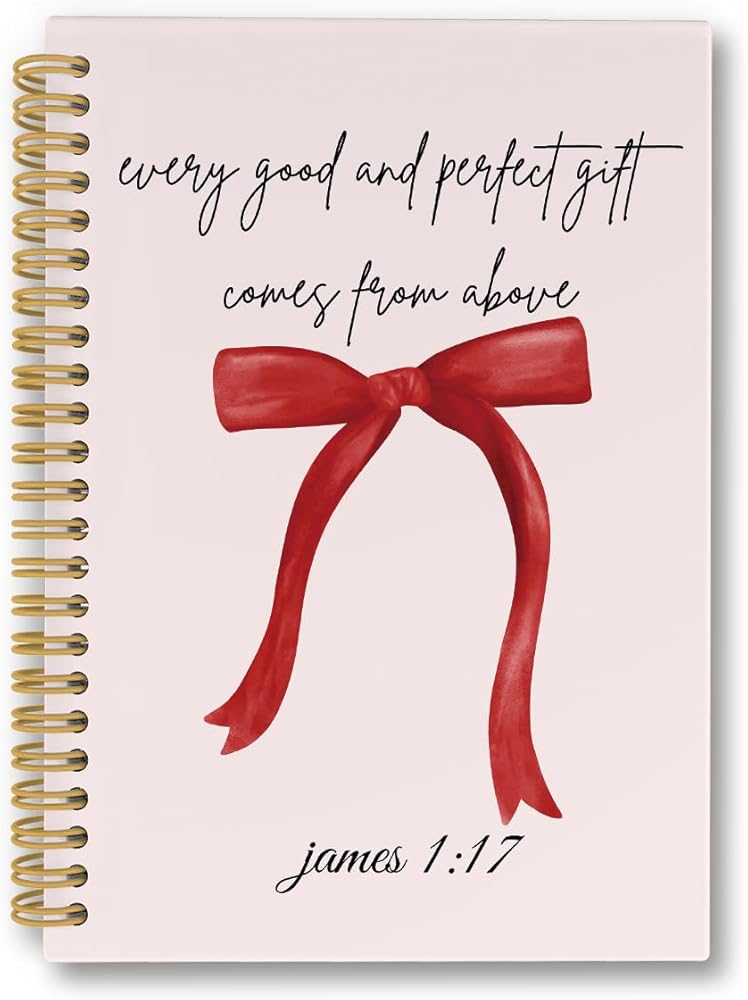 every good and perfect gift
comes from above
james 1:17